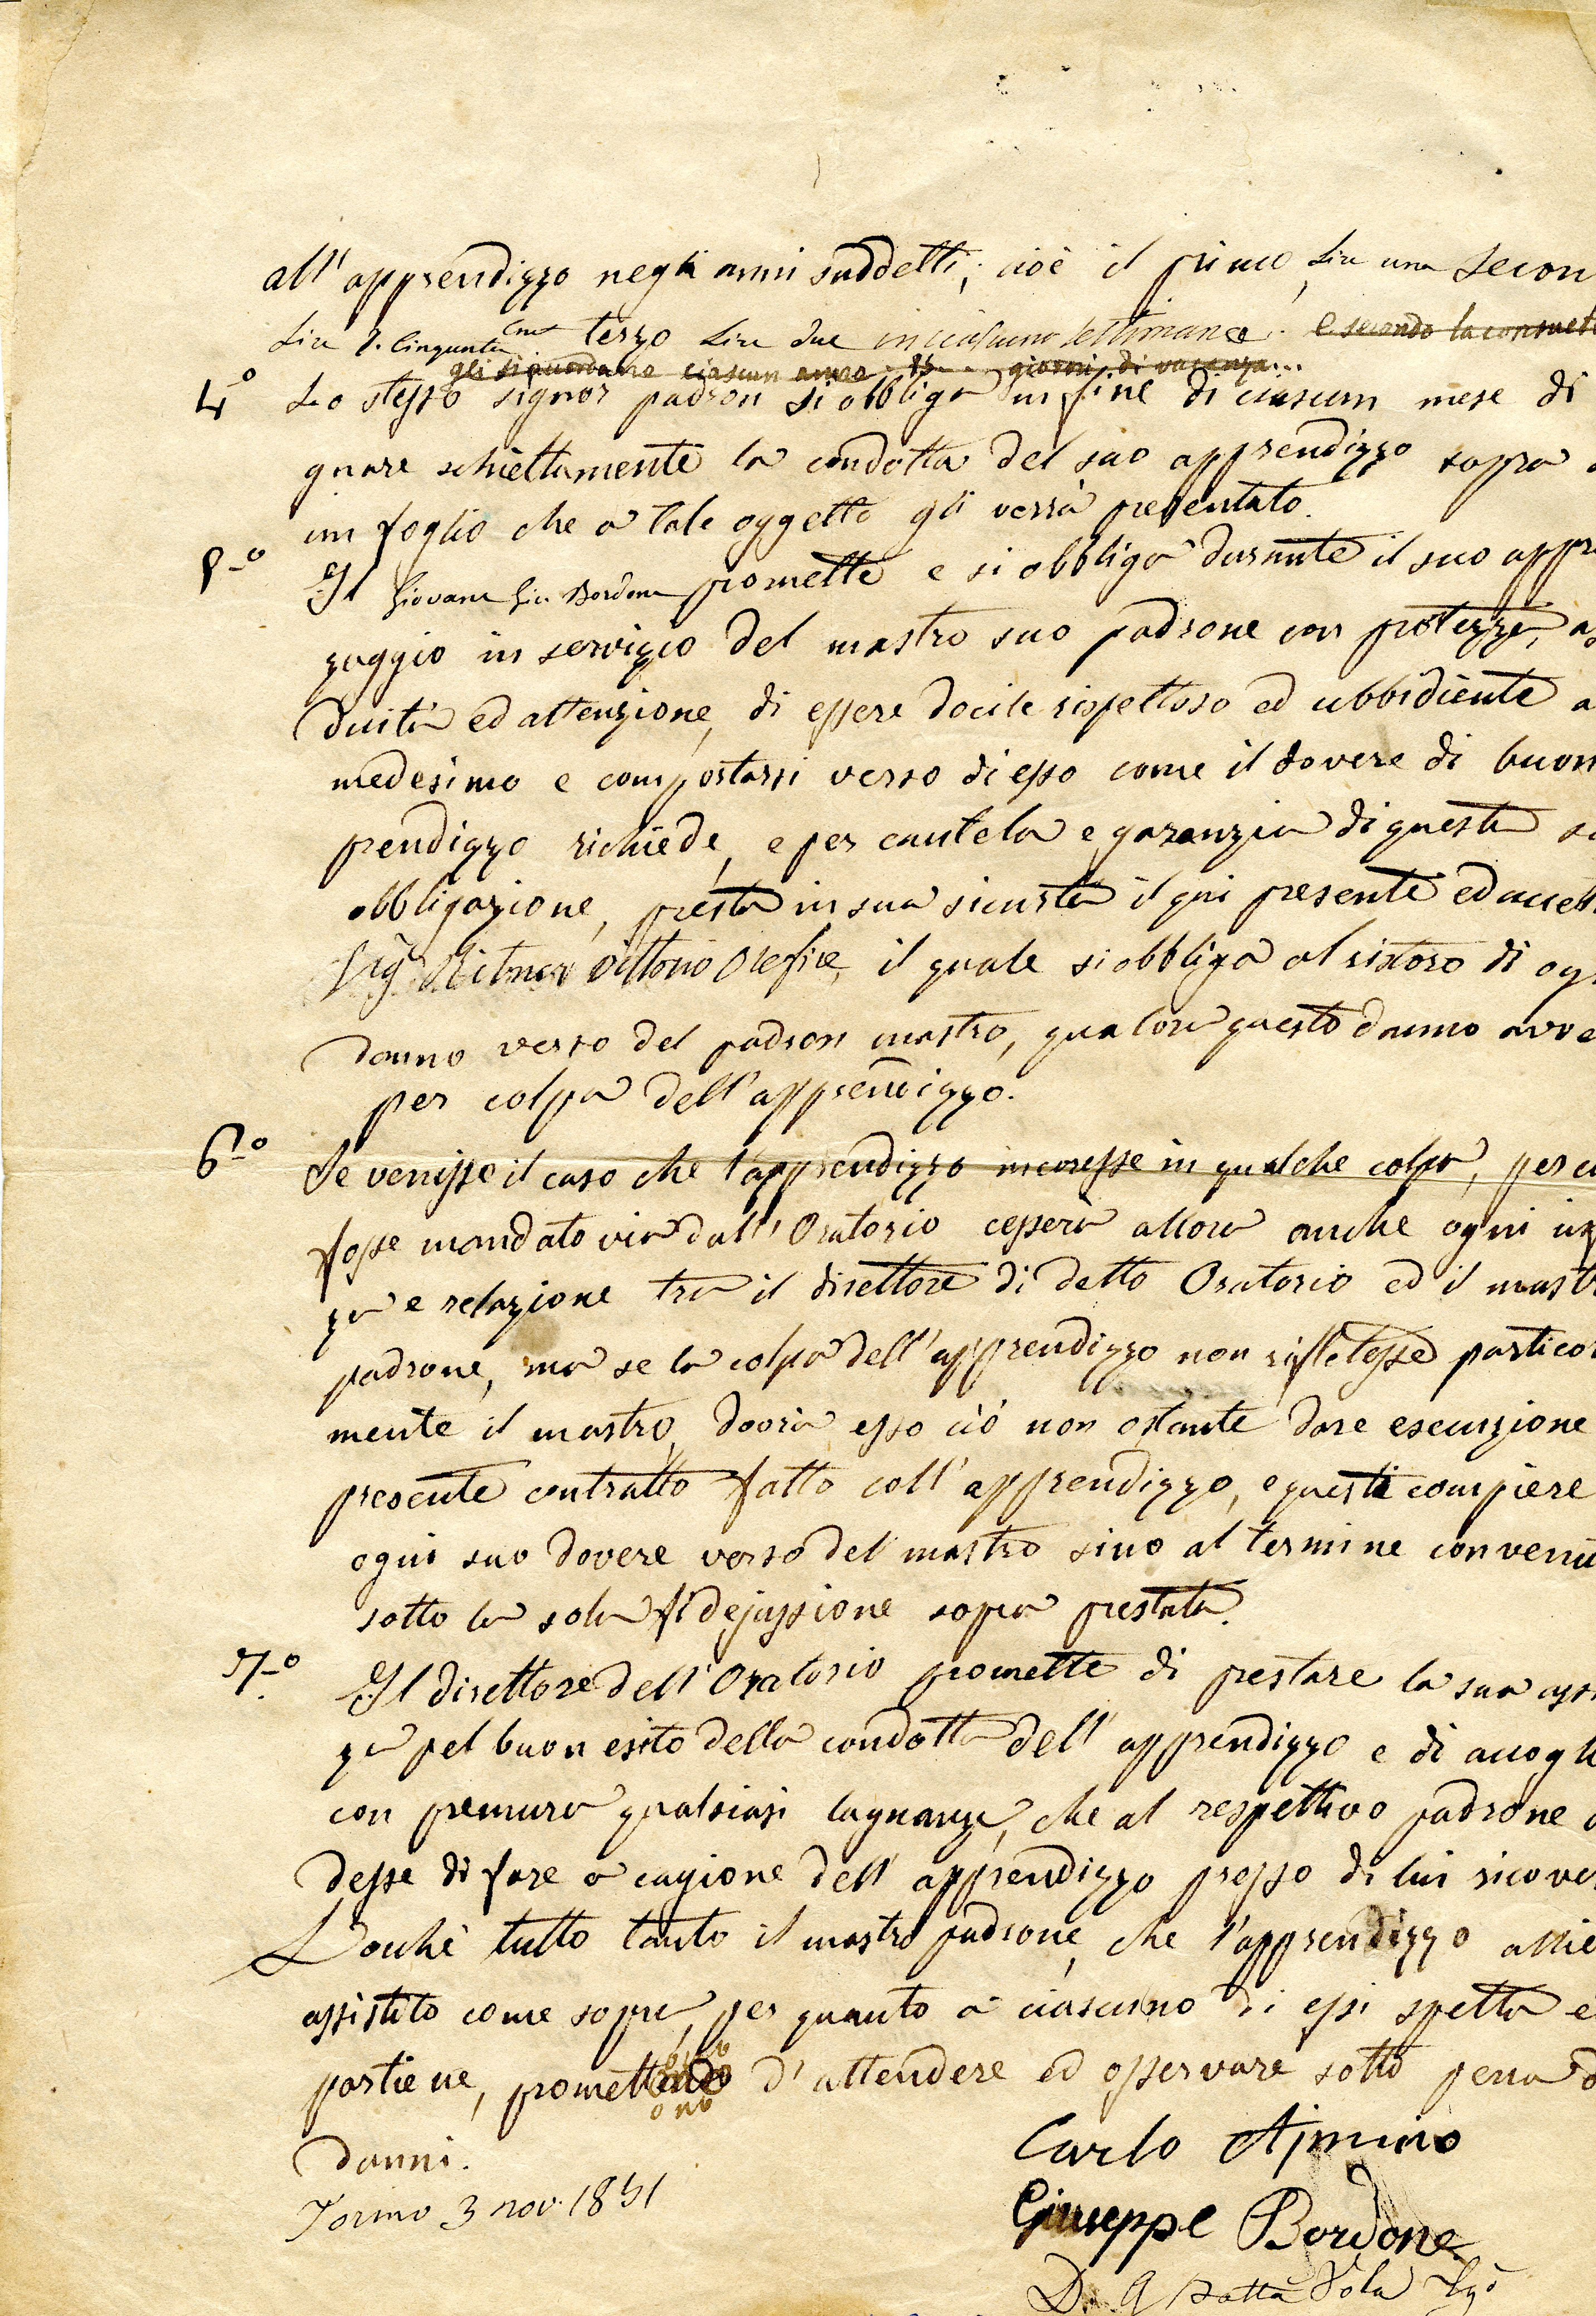 all'apprendizzo negli anni suddetti, cioè il primo, Lire una secon
Lire 1. Cinquanta Cmi terzo Lire due in ciascuna settimana. e secondo la consuet
gli si accorda ciascun anno 15 giorni di vacanza...
4º Lo stesso signor padron si obbliga in fine di ciascun mese di
gnare schiettamente la condotta del suo apprendizzo sopra
un foglio che a tale oggetto gli verrà presentato.
5º Il Giovane Giu Bordone promette e si obbliga durante il suo appr
zaggio in servizio del mastro suo padrone con protezza, as
duità ed attenzione, di essere docile rispettoso ed ubbidiente a
medesimo e comportarsi verso di esso come il dovere di buon
prendizzo richiede, e per cautela e garanzia di questa s
obbligazione, presta in sua sicurtà il qui presente ed accett
Sig Ritner Vittorio Orefice, il quale si obbliga al ristoro di og
danno verso del padron mastro, qualora questo danno avve
per colpa dell'apprendizzo.
6º Se venisse il caso che l'apprendizzo incoresse in qualche colpa, per cu
fosse mandato via dall'Oratorio cesserà allora anche ogni
za e relazione tra il direttore di detto Oratorio ed il mast
padrone, ma se la colpa dell'apprendizzo non riffletesse particol
mente il mastro, dovrà esso ciò non ostante dare esecuzione
presente contratto fatto coll'apprendizzo, e questi compiere
ogni suo dovere verso del mastro sino al termine convenu
sotto la sola fidejussione sopra prestata.
7º. Il direttore dell'Oratorio promette di prestare la sua ass
za pel buon esito della condotta dell'apprendizzo e di accogle
con premura qualsiasi lagnanza, che al respettivo padrone
desse di fare a cagione dell'apprendizzo presso di lui ricover
Locchè tutto tanto il mastro padrone, che l'apprendizzo allie
assistito come sopra, per quanto a ciascuno di essi spetta e
partiene, promettono d'attendere ed osservare sotto pena d
ono
danni.
Torino 3 nov. 1851
Carlo Ajmino
Giuseppe Bordone
D. G Batta Vola